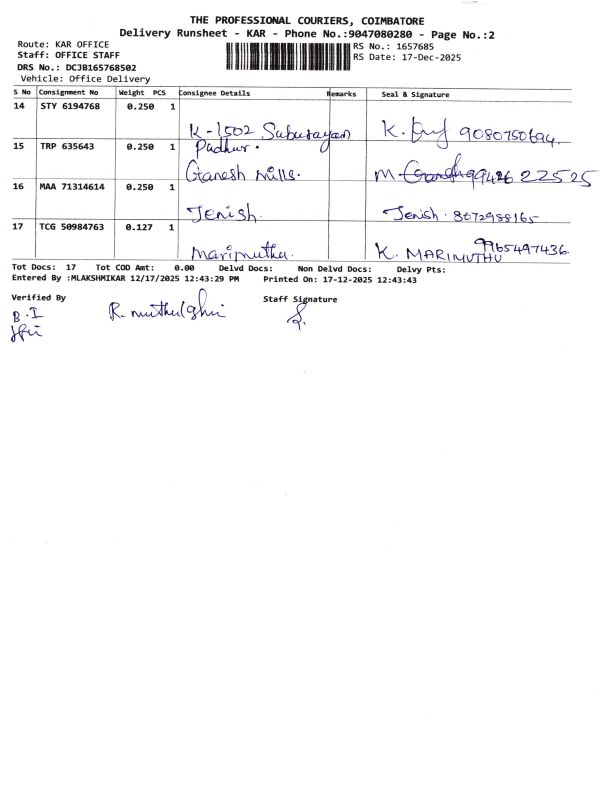 THE PROFESSIONAL COURIERS, COIMBATORE
Delivery Runsheet - KAR - Phone No.:9047080280 - Page No.:2
Route: KAR OFFICE
RS No.: 1657685
Staff: OFFICE STAFF
RS Date: 17-Dec-2025
DRS No.: DCJB165768502
Vehicle: Office Delivery
S No Consignment No Weight PCS Consignee Details Remarks Seal & Signature
14 STY 6194768 0.250 1
K-1502 Suburayan K. 9080750694
Pudhur.
15 TRP 635643 0.250 1
Ganesh mills. M. 99426 22525
16 MAA 71314614 0.250 1
Jenish. Jenish. 8072988165
17 TCG 50984763 0.127 1
Marimuthu. K. MARIMUTHU 9965497436
Tot Docs: 17 Tot COD Amt: 0.00 Delvd Docs: Non Delvd Docs: Delvy Pts:
Entered By :MLAKSHMIKAR 12/17/2025 12:43:29 PM Printed On: 17-12-2025 12:43:43
Verified By
Staff Signature
B. I
R.